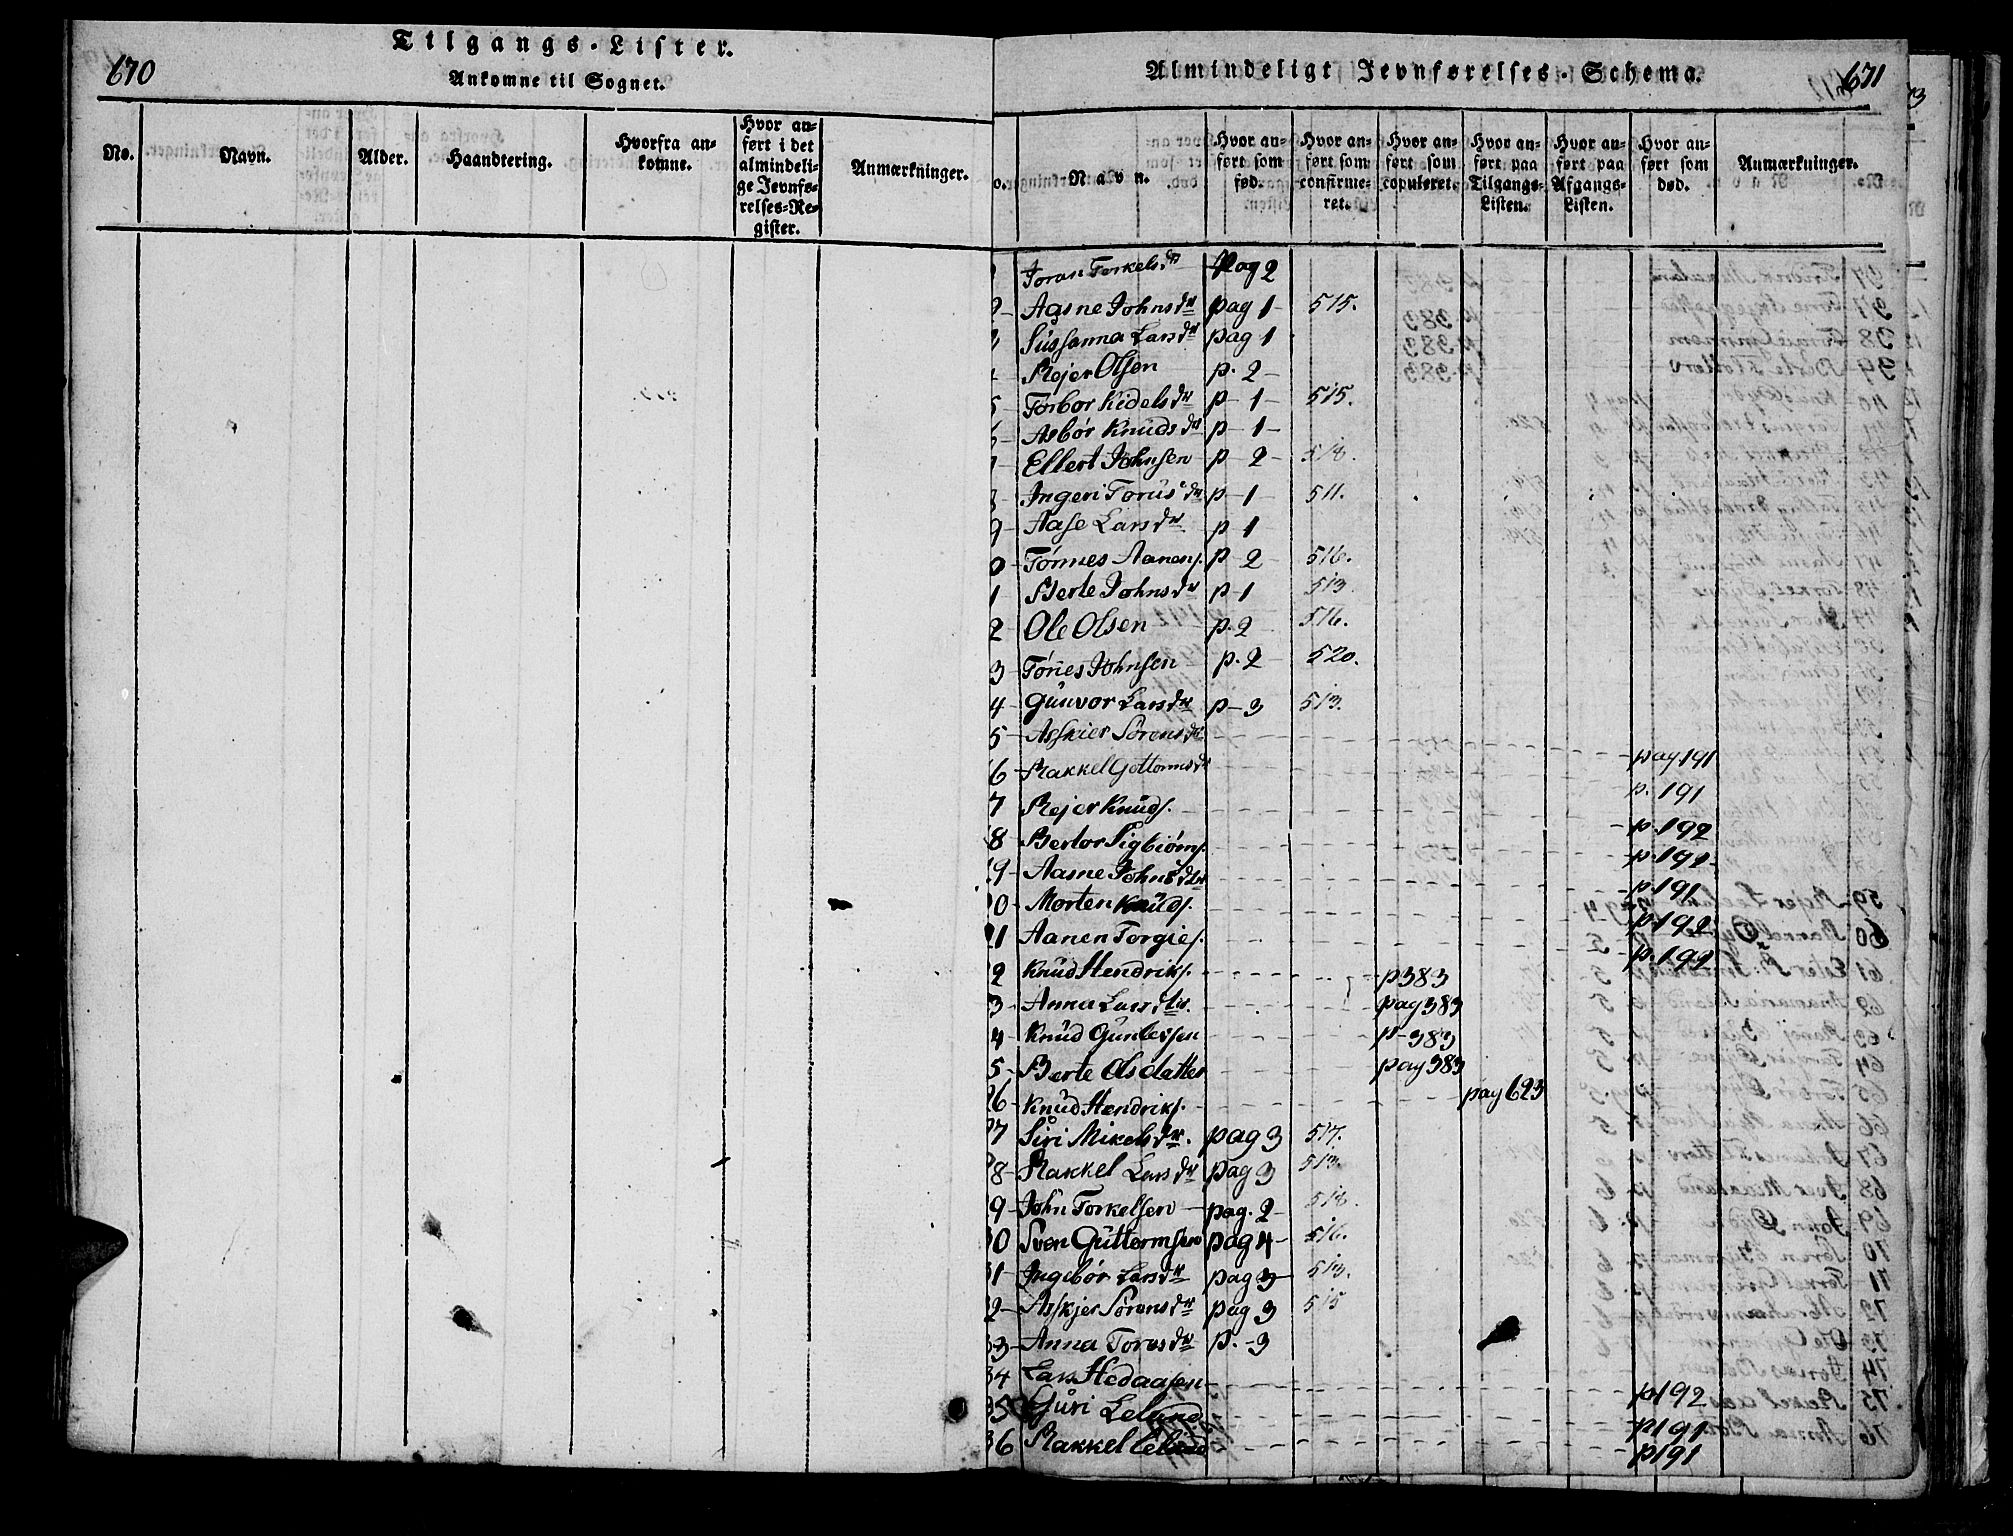 670
Tilgangs-Lister.
Ankomne til Sognet.
No.
Navn.
Alder.
Haandtering.
Hvorfra an-
komne.
Hvor an-
ført i det
almindeli-
ge Jevnfø-
relses-Re-
gister.
Anmærkninger.
Almindeligt Jevnførelses-Schema.
671
o.
Navn.
Hvor an-
ført som
fød.
Hvor an-
ført som
confirme-
ret.
Hvor an-
ført som
copuleret.
Hvor an-
ført paa
Tilgangs-
Listen.
Hvor an-
ført paa
Afgangs-
Listen.
Hvor an-
ført som
død.
Anmærkninger.
Joran Torkelsdr Pag 2
2 Aasne Johnsdr pag 1 515.
Sussanna Larsdr pag 1
Rejer Olsen p. 2
5 Torbor Kidelsdr p 1 515.
6 Asbór Knudsdr p 1
Ellert Johnsen p 2 518.
8 Ingeri Torusdr p 1 511.
9 Aase Larsdr p 1
0 Tónnes Aanens. p 2 516.
1 Berte Johnsdr p 1 513
2 Ole Olsen p. 2 516.
3 Tónes Johnsen p. 2 520.
4 Gunvor Larsdr p 3 513.
5 Asskier Sórensdr pag 191
6 Rakkel Gottormsdr p. 191
7 Rejer Knuds. p. 192
8 Bertor Sigbiórns. p. 192
19 Aasne Johnsdtr p. 191
20 Morten Knuds. p 192
21 Aanen Torgies. p. 192
2 Knud Hendriks. p 383
3 Anna Larsdtr. pag 383
4 Knud Gunlessen p 383
5 Berte Olsdatter pag 383
26 Knud Hendriks. pag 623
27 Siri Mikelsdr. pag 3 517.
28 Rakkel Larsdr pag 3 513.
9 John Torkelsen pag. 2 518.
30 Sven Guttormsen pag 4 516.
31 Ingebór Larsdr pag 3 513.
2 Asskjer Sórensdr pag 3 515
33 Anna Toresdr p. 3
34 Lars Hedaasen p 192
35 Guri Leland p 191
36 Rakkel Leland p 191